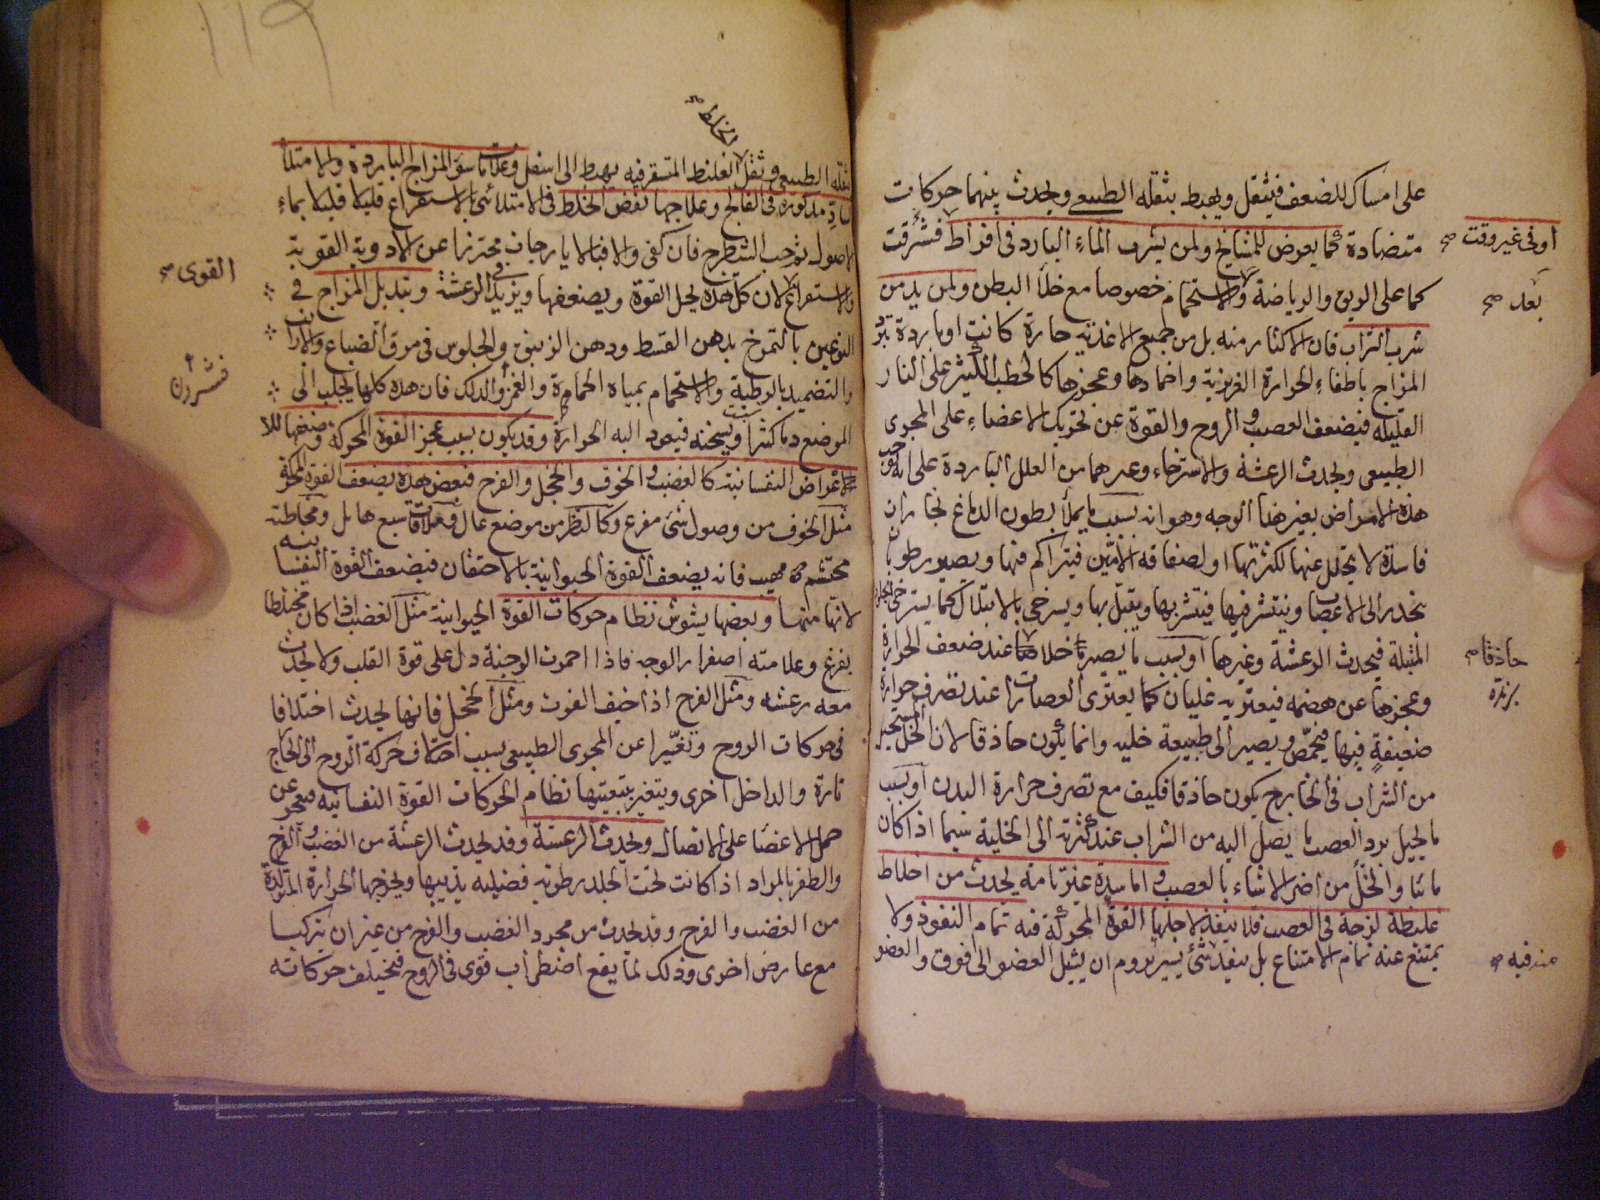 على امساك للضعف فيثقل ويهبط بثقله الطبيعي ويحدث بينهما حركات
متضادة كما يعرض للمشايخ ولمن يشرب الماء البارد في افراط فشرقت
اوفى غير وقت صح
كما على الريق والرياضة والاستحمام خصوصا مع خلاء البطن ولمن يدمن
بعد صح
شرب الشراب فان الاكثار منه بل من جميع الاغذية حارة كانت او باردة
المزاج باطفاء الحرارة الغريزية واخمادها وعجزها كالحطب الكثير على النار
القليلة فيضعف العصب والروح والقوة عن تحريك الاعضاء على المجرى
الطبيعي ويحدث الرعشة والاسترخاء وغيرهما من العلل الباردة على انه
هذه الامراض بغير هذا الوجه وهو انه بسبب ما يملأ بطون الدماغ بخارات
فاسدة لا يتحلل عنها لكثرتها او لصفاقه الامين فيتراكم فيها ويصير رطوبات
ينحدر الى الاعصاب وينتشر فيها فيتشربها ويقبل بها ويسترخي بالابتلال كما يسترخي
المبتلة فيحدث الرعشة وغيرها او بسبب ما يصير خلا عند ضعف الحرارة
حاذقا صح
وعجزها عن هضمه فيعتريه غليان كما يعتري العصارات عند تصرف حرارة
ضعيفة فيها فيحمض ويصير الى طبيعة خليه وانما يكون حاذقا لان الخل
من الشراب في الخارج يكون حاذقا فكيف مع تصرف حرارة البدن او بسبب
ما يحيل برد العصب ما يصل اليه من الشراب عند كثرته الى الخلية سيما اذا كان
مائيا والخل من اضر الاشياء بالعصب واما سدة غير تامة يحدث من اخلاط
غليظة لزجة في العصب فلا ينفذ لاجلها القوة المحركة فيه تمام النفوذ ولا
يمتنع عنه تمام الامتناع بل ينفذ شئ يسير يروم ان يشيل العضو الى فوق والعضو
الخلط صح
بثقله الطبيعي وثقل الغليظ المتسفرقيه يهبط الى اسفل وعلامات سوء المزاج الباردة والامتلاء
مذكورة في الفالج وعلاجها نفض الخلط في الامتلائي بالاستفراغ قليلا قليلا بماء
الاصول بحب الشيطرج فان كفى والا فبالايارجات محترزا عن الادوية القوية
القوى صح
والاستفراغ لان كل هذه يحل القوة ويضعفها ويزيد في الرعشة وتبديل المزاج في
النوعين بالتمرخ بدهن القسط ودهن الزنبق والجلوس في مرق الضباع والارانب
والتضميد بالرطبة والاستحمام بمياه الحمامة والغمز والدلك فان هذه كلها يجلب الى
الموضع دما كثيرا ويسخنه فيعود اليه الحرارة وقد يكون بسبب عجز القوة المحركة وضعفها
للاعراض النفسانية كالغضب والخوف والخجل والفرح فبعض هذه يضعف القوة المحركة
مثل الخوف من وصول شئ مفزع وكالنظر من موضع عال وملاقات سبع هايل ومخاطبة
محتشم مهيب فانه يضعف القوة الحيوانية بالاحتقان فيضعف القوة النفسانية
لانها منها وبعضها يشوش نظام حركات القوة الحيوانية مثل الغضب اذا كان مختلطا
بفزع وعلامته اصفرار الوجه فاذا احمرت الوجنة دل على قوة القلب ولا يحدث
معه رعشة ومثل الفرح اذا خيف الفوت ومثل الخجل فانها يحدث اختلافا
في حركات الروح وتغيرا عن المجرى الطبيعي بسبب اختلاف حركة الروح الى الخارج
تارة والداخل اخرى ويتغير بتبعيتها نظام الحركات القوة النفسانية فيعجز عن
حمل الاعضا على الاتصال ويحدث الرعشة وقد يحدث الرعشة من الغضب والفرح
والظفر بالمراد اذا كانت تحت الجلد رطوبة فضلية يذيبها ويخرجها الحرارة المتولدة
من الغضب والفرح وقد يحدث من مجرد الغضب والفرح من غير ان يتركبا
مع عارض اخرى وذلك لما يقع اضطراب قوى في الروح فيختلف حركاته